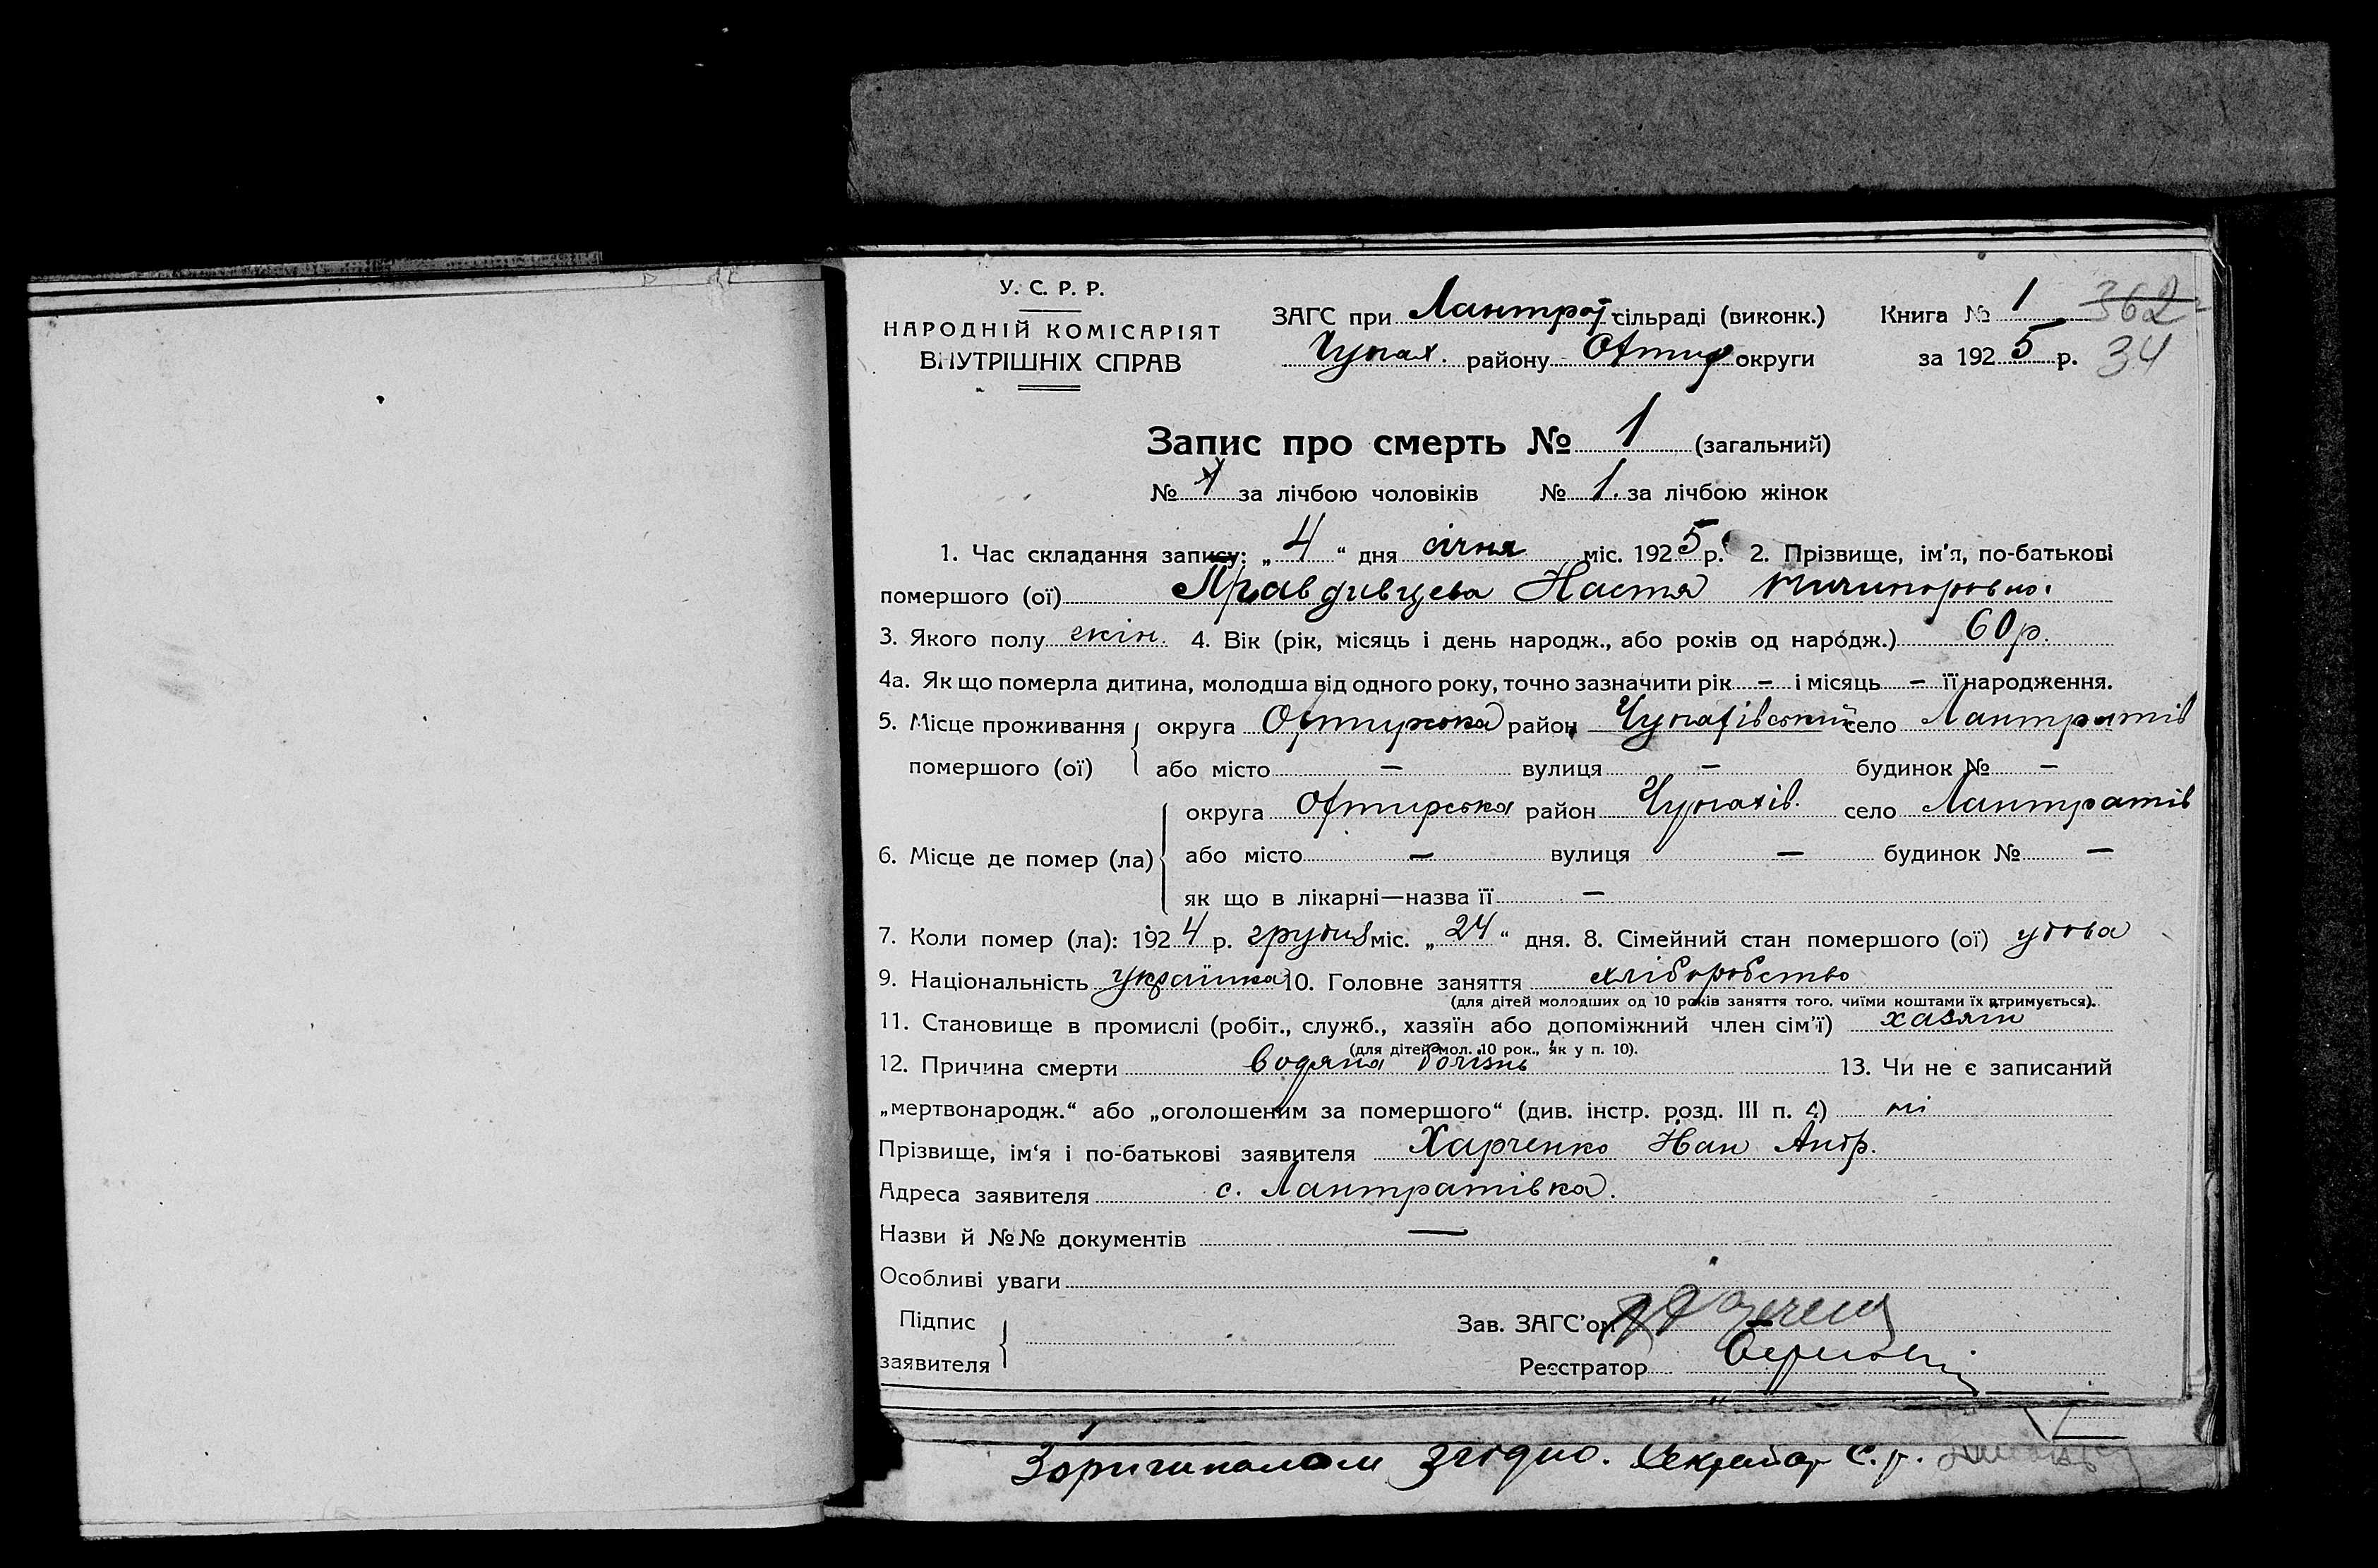 У. С. Р. Р.
НАРОДНІЙ КОМІСАРІЯТ
ВНУТРІШНІХ СПРАВ
ЗАГС при Лантрат сільраді (виконк.)
Чупах. району Охтир округи
Книга № 1 362
за 1925 р. 34
Запис про смерть № 1 (загальний)
№ за лічбою чоловіків № 1. за лічбою жінок
1. Час складання запису: „4“ дня січня міс. 1925 р. 2. Прізвище, ім'я, по-батькові
помершого (ої) Правдивцева Настя Ничипоровна
3. Якого полу жін. 4. Вік (рік, місяць і день народж., або років од народж.) 60 р.
4а. Як що померла дитина, молодша від одного року, точно зазначити рік — і місяць — її народження.
5. Місце проживання округа Охтирська район Чупахівський село Лантратів
помершого (ої) або місто — вулиця — будинок № —
округа Охтирська район Чупахів. село Лантратів
6. Місце де помер (ла) або місто — вулиця — будинок № —
як що в лікарні—назва її —
7. Коли помер (ла): 1924 р. грудня міс. „24“ дня. 8. Сімейний стан помершого (ої) удова
9. Національність українка 10. Головне заняття хліборобство
(для дітей молодших од 10 років заняття того, чиїми коштами їх утримується).
11. Становище в промислі (робіт., служб., хазяїн або допоміжний член сім'ї) хазяїн
(для дітей мол. 10 рок., як у п. 10).
12. Причина смерти водяна болізнь 13. Чи не є записаний
„мертвонародж.“ або „оголошеним за помершого“ (див. інстр. розд. III п. 4) ні
Прізвище, ім'я і по-батькові заявителя Харченко Іван Андр.
Адреса заявителя с. Лантратівка.
Назви й №№ документів —
Особливі уваги
Підпис
заявителя
Зав. ЗАГС'ом
Реєстратор
З оригиналом згідно. Секретар С. р.